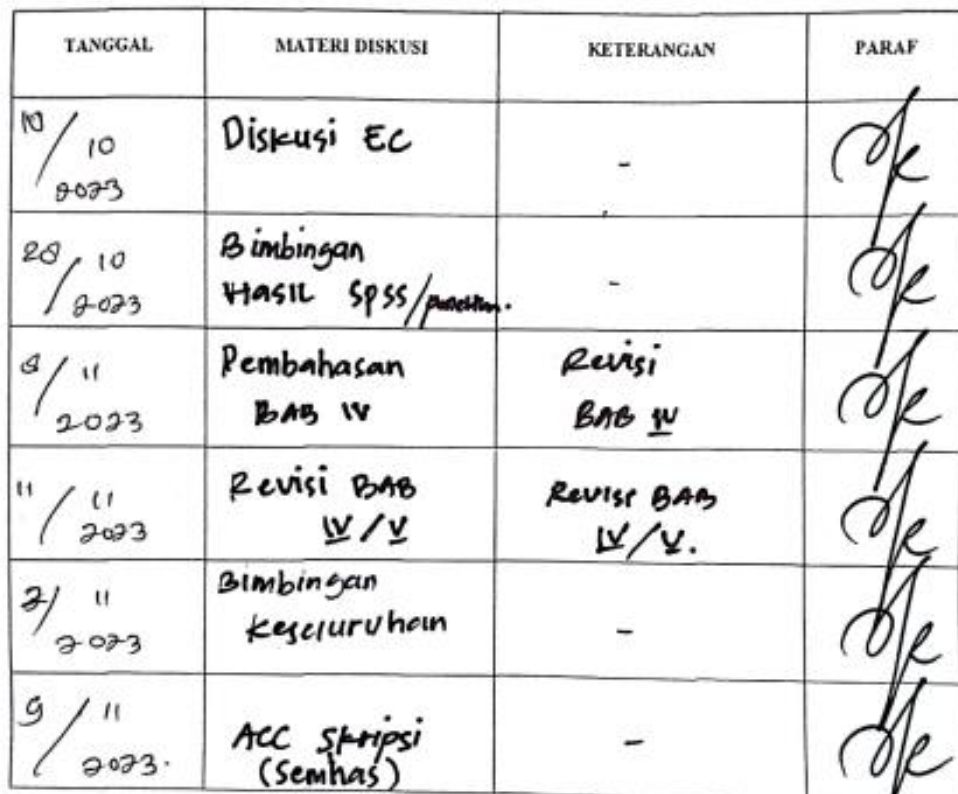 TANGGAL MATERI DISKUSI KETERANGAN PARAF
10/10 2023 Diskusi EC -
28/10 2023 Bimbingan
Hasil SPSS/ -
8/11 2023 Pembahasan Revisi
BAB IV BAB IV
11/11 2023 Revisi BAB Revisi BAB
IV/V IV/V.
2/11 2023 Bimbingan
Keseluruhan -
9/11 2023. ACC Skripsi
(Semhas) -